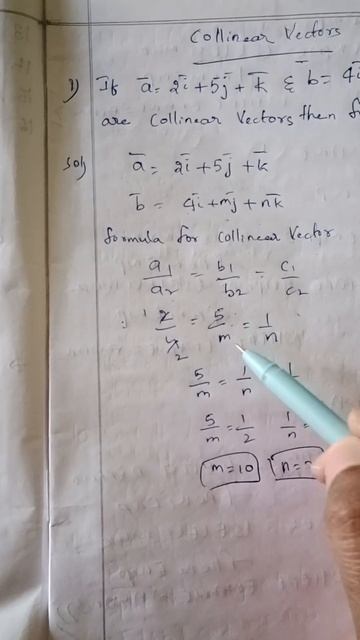 Collinear Vectors
1) If a̅ = 2i̅ + 5j̅ + k̅ & b̅ = 4i̅
are Collinear Vectors then
Sol) a̅ = 2i̅ + 5j̅ + k̅
b̅ = 4i̅ + mj̅ + nk̅
formula for Collinear Vector
a₁/a₂ = b₁/b₂ = c₁/c₂
∴ 2/4 2 = 5/m = 1/n
5/m = 1/n
5/m = 1/2 1/n =
m = 10 n =